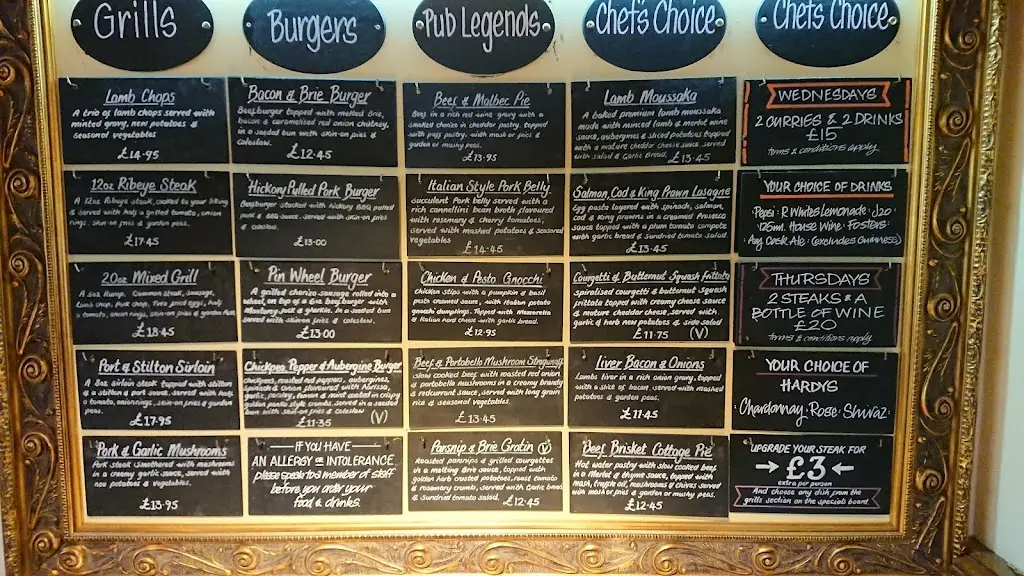 Grills
Lamb Chops
A trio of lamb chops served with
minted gravy, new potatoes &
seasonal vegetables
£14.95
12oz Ribeye Steak
A 12oz Ribeye steak, cooked to your liking
& served with half a grilled tomato, onion
rings, skin-on fries & garden peas.
£17.45
20oz Mixed Grill
A 5oz Rump, Gammon steak, Sausage,
Lamb chop, Pork chop, Two fried eggs, half
a tomato, onion rings, skin-on fries & garden Peas.
£18.45
Port & Stilton Sirloin
A 8oz Sirloin steak topped with stilton
& a stilton & port sauce. Served with half
tomato, onion rings, skin-on fries & garden
peas.
£17.95
Pork & Garlic Mushrooms
Pork steak smothered with mushrooms
in a creamy garlic sauce, served with
new potatoes & vegetables.
£13.95
Burgers
Bacon & Brie Burger
Beefburger topped with melted Brie,
bacon & caramelised red onion chutney,
in a seeded bun with skin-on fries &
coleslaw.
£12.45
Hickory Pulled Pork Burger
Beefburger stacked with hickory BBQ pulled
pork & BBQ sauce. Served with skin-on fries
& coleslaw.
£13.00
Pin Wheel Burger
A grilled chorizo sausage rolled into a
wheel, on top of a 6oz beef burger with
Monterey Jack & gherkin. In a seeded bun
served with skin-on fries & coleslaw.
£13.00
Chickpea Pepper & Aubergine Burger
Chickpeas, roasted red peppers, aubergines,
& onion flavoured with harissa,
garlic, parsley, & mint coated in crispy
golden panko style crumbs. Served in a seeded
bun with skin-on fries & coleslaw
£11.35 (V)
IF YOU HAVE
AN ALLERGY OR INTOLERANCE
please speak to a member of staff
before you order your
food & drinks.
Pub Legends
Beef & Malbec Pie
Beef in a rich red wine gravy with a
smoked choice in cheddar pastry, topped
with puff pastry, with mash or fries &
garden or mushy peas.
£13.95
Italian Style Pork Belly
succulent Pork belly served with a
rich cannellini bean broth flavoured
with rosemary & cherry tomatoes,
served with mashed potatoes & seasonal
vegetables
£14.45
Chicken & Pesto Gnocchi
chicken strips with a pumpkin & basil
pesto creamed sauce, with Italian potato
gnocchi dumplings. Topped with Mozzarella
& Italian hard cheese with garlic bread.
£12.95
Beef & Portobello Mushroom Stroganoff
slow cooked beef with roasted red onion
& portobello mushrooms in a creamy brandy
& redcurrant sauce, served with long grain
rice & seasonal vegetables
£13.45
Parsnip & Brie Gratin (V)
Roasted parsnips & grilled courgettes
in a melting Brie sauce, topped with
golden herb crusted potatoes, roast tomato
& rosemary crumb, served with Garlic bread
& Sundried tomato salad.
£12.45
Chef's Choice
Lamb Moussaka
A baked premium lamb moussaka
made with minced lamb & merlot wine
sauce, aubergines & sliced potatoes topped
with a mature cheddar cheese sauce. Served
with salad & Garlic Bread.
£13.45
Salmon, Cod & King Prawn Lasagne
Egg pasta layered with spinach, salmon,
cod & king prawns in a creamed Prosecco
sauce topped with a plum tomato compote
with garlic bread & sundried tomato salad.
£13.45
Courgetti & Butternut Squash Frittata
spiralised courgette & butternut squash
frittata topped with creamy cheese sauce
& mature cheddar cheese, served with
garlic & herb new potatoes & side salad
£11.75 (V)
Liver Bacon & Onions
Lambs liver in a rich onion gravy, topped
with a slice of bacon. served with mashed
potatoes & garden peas.
£11.45
Beef Brisket Cottage Pie
Hot water pastry with slow cooked beef
in a Merlot & thyme sauce, topped with
mash, truffle oil, mushrooms & chives served
with mash or fries & garden or mushy peas.
£12.45
Chef's Choice
WEDNESDAYS
2 CURRIES & 2 DRINKS
£15
terms & conditions apply
YOUR CHOICE OF DRINKS
Pepsi · R Whites Lemonade · J2o ·
125ml House Wine · Fosters ·
Any Cask Ale · (excludes Guinness)
THURSDAYS
2 STEAKS & A
BOTTLE OF WINE
£20
terms & conditions apply
YOUR CHOICE OF
HARDYS
·Chardonnay · Rose · Shiraz·
UPGRADE YOUR STEAK FOR
→ £3 ←
extra per person
And choose any dish from the
grills section on the specials board